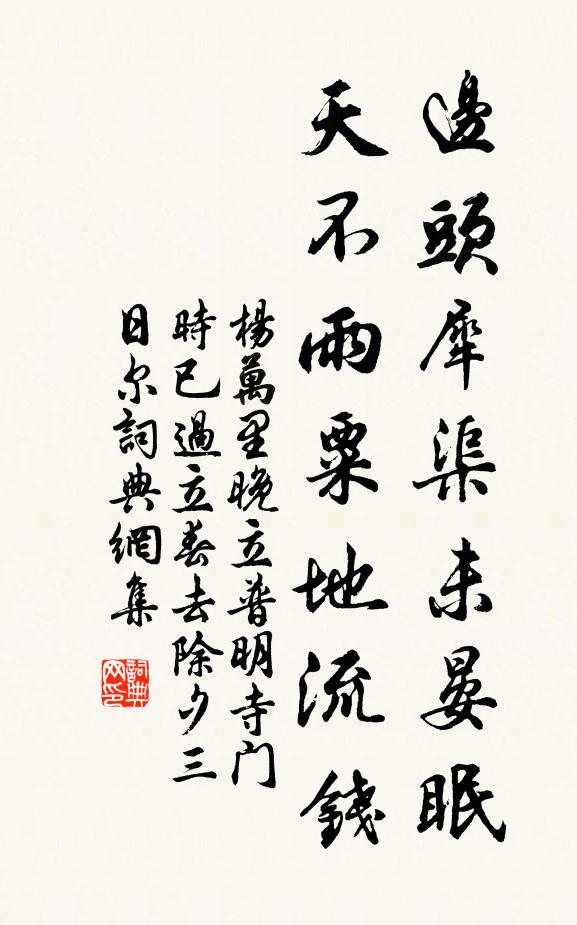 邊頭犀渠未晏眠
天不雨粟地流錢
楊萬里晚立普明寺门
時已過立春去除夕三
日尔詞典網集
詞典网印